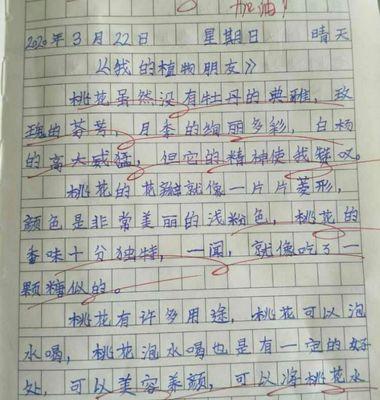 加油!
2020年3月22日 星期日 晴天
《我的植物朋友》
桃花虽然没有牡丹的典雅，玫
瑰的芬芳，月季的绚丽多彩，白杨
的高大威猛，但它的精神使我
桃花的花瓣就像一片片菱形，
颜色是非常美丽的浅粉色，桃花的
香味十分独特，一闻，就像吃了一
颗糖似的。
桃花有许多用途，桃花可以泡
水喝，桃花泡水喝也是有一定的好
处，可以美容养颜，可以将桃花水